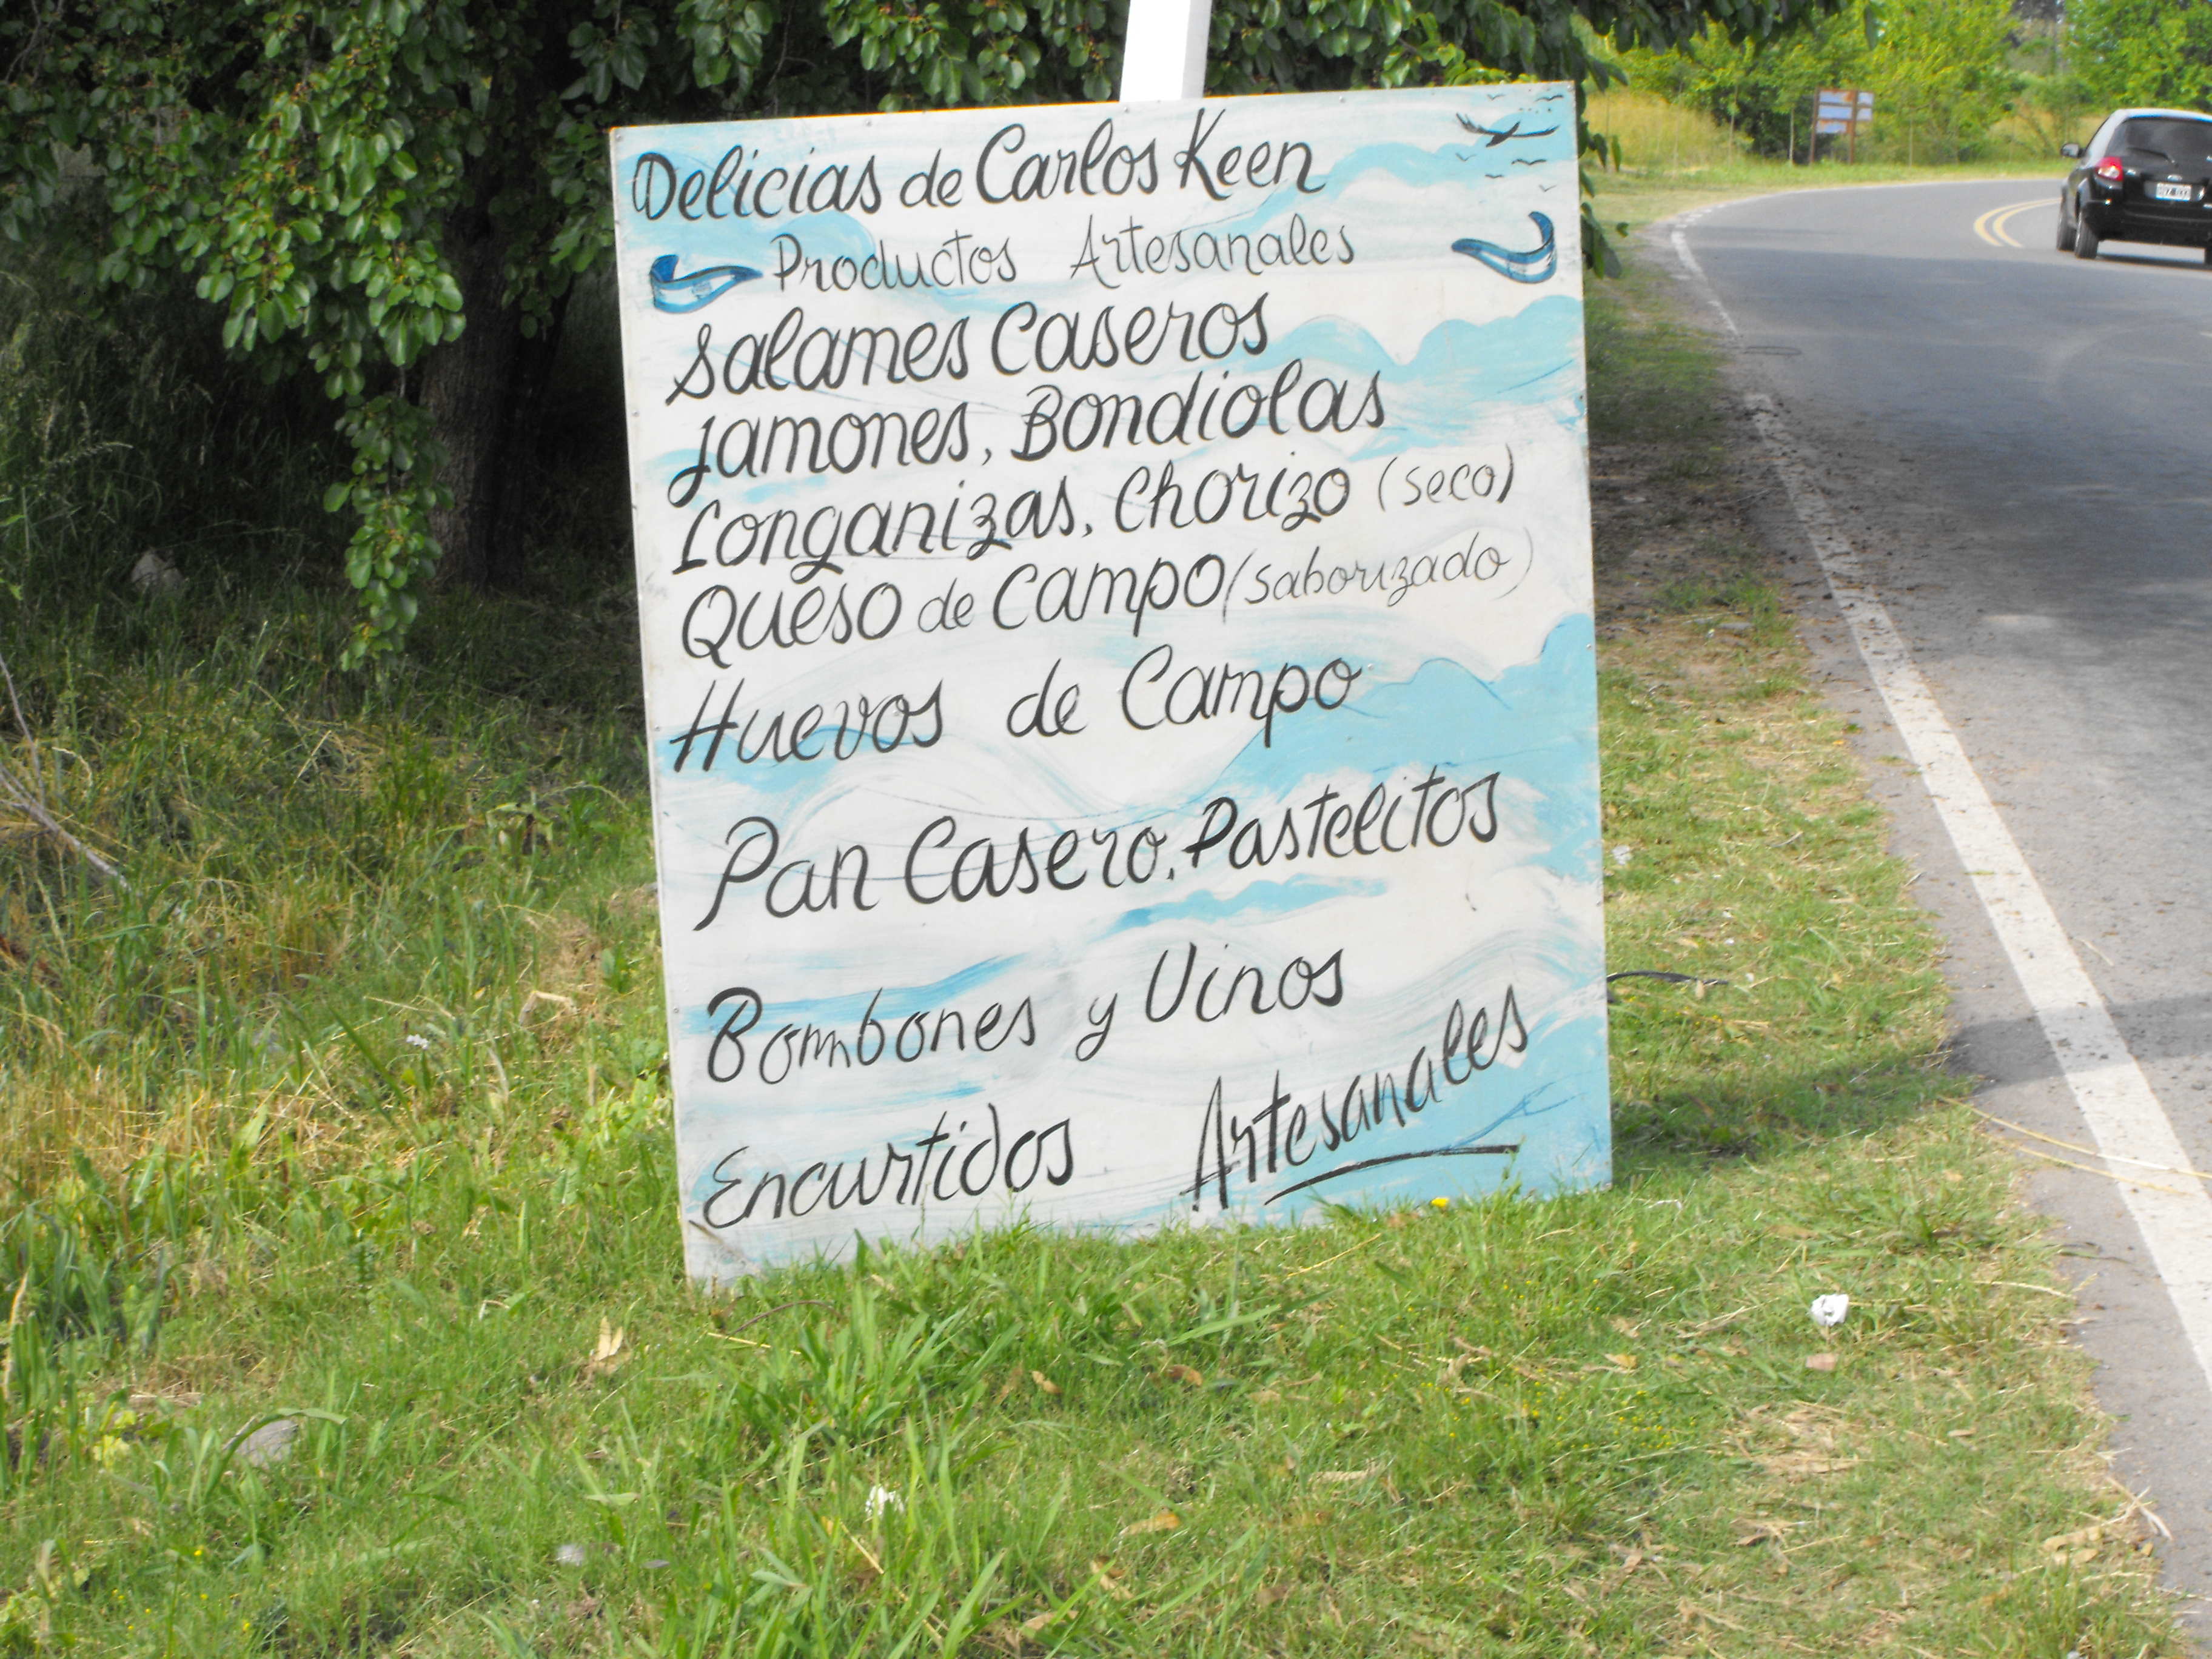 Delicias de Carlos Keen
Productos Artesanales
Salames Caseros
Jamones, Bondiolas
Longanizas, Chorizo (seco)
Queso de Campo (saborizado)
Huevos de Campo
Pan Casero, Pastelitos
Bombones y Vinos
Encurtidos Artesanales